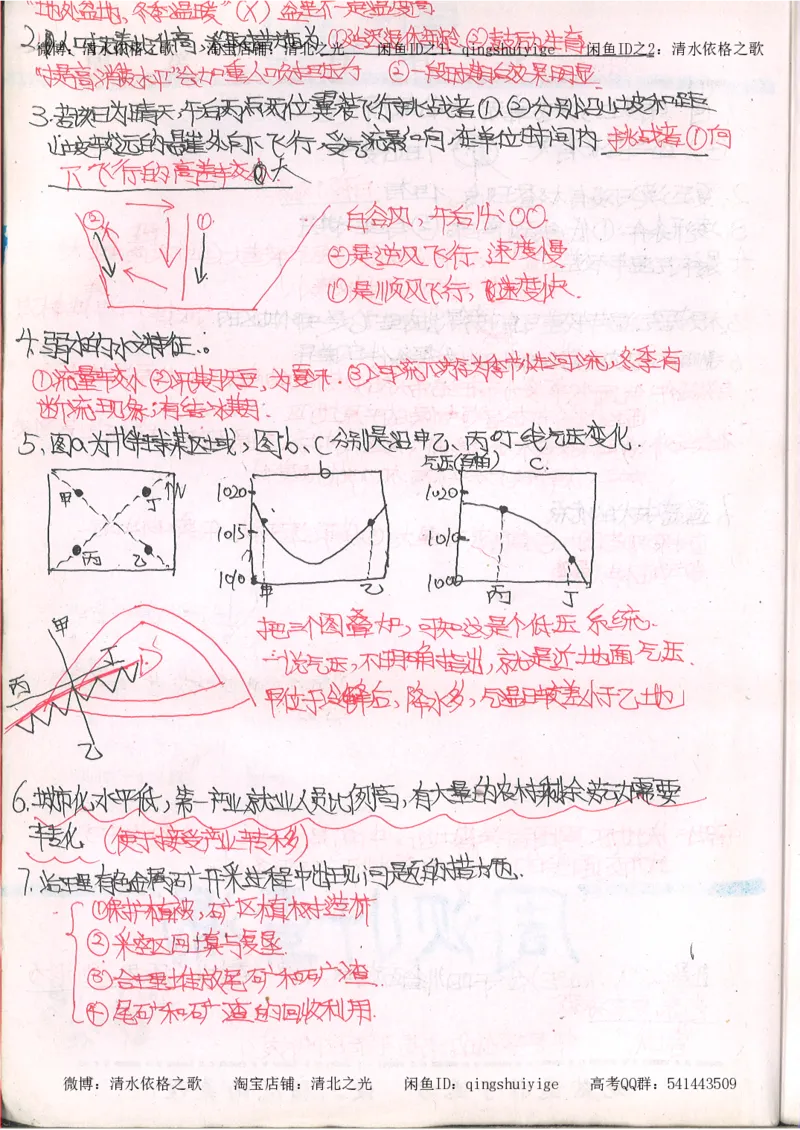 "地处盆地，冬季温暖"（×）盆里不一定温度高
微博：清水依格之歌 淘宝店铺：清北之光 闲鱼ID之1：qingshuiyige 闲鱼ID之2：清水依格之歌
3. 若该日为晴天，午后两点两位翼装飞行挑战者①、②分别沿山坡和距
山坡较远的悬崖处向下飞行，受气流影响，在单位时间内，挑战者①向
下飞行的高差较大
② ①
白谷风，午后14:00
②是逆风飞行，速度慢
①是顺风飞行，飞速度快.
4. 弱水的水文特征。
①流量较小②汛期短，为夏汛.③河流只为内流河，冬季有
断流现象；有结冰期.
5. 图a为北半球某区域，图b、c分别是沿甲乙、丙丁线气压变化.
气压(百帕)
b c.
甲 丁 N 丙 乙
1020 1015 1010 甲 乙
1020 1010 1000 丙 丁
把三个图叠加，可知这是个低压系统.
一说气压，不明确指出，就是近地面气压.
甲位于冷锋后，降水多，气温日较差小于乙地
甲 丁 丙 乙
6. 城市化水平低，第一产业就业人员比例高，有大量的农村剩余劳动需要
转化（便于接受产业转移）
7. 治理有色金属矿开采过程中出现问题的措施.
①保护植被，矿区植树造林
②采空区回填与复垦
③合理堆放尾矿和矿渣
④尾矿和矿渣的回收利用.
微博：清水依格之歌 淘宝店铺：清北之光 闲鱼ID：qingshuiyige 高考QQ群：541443509